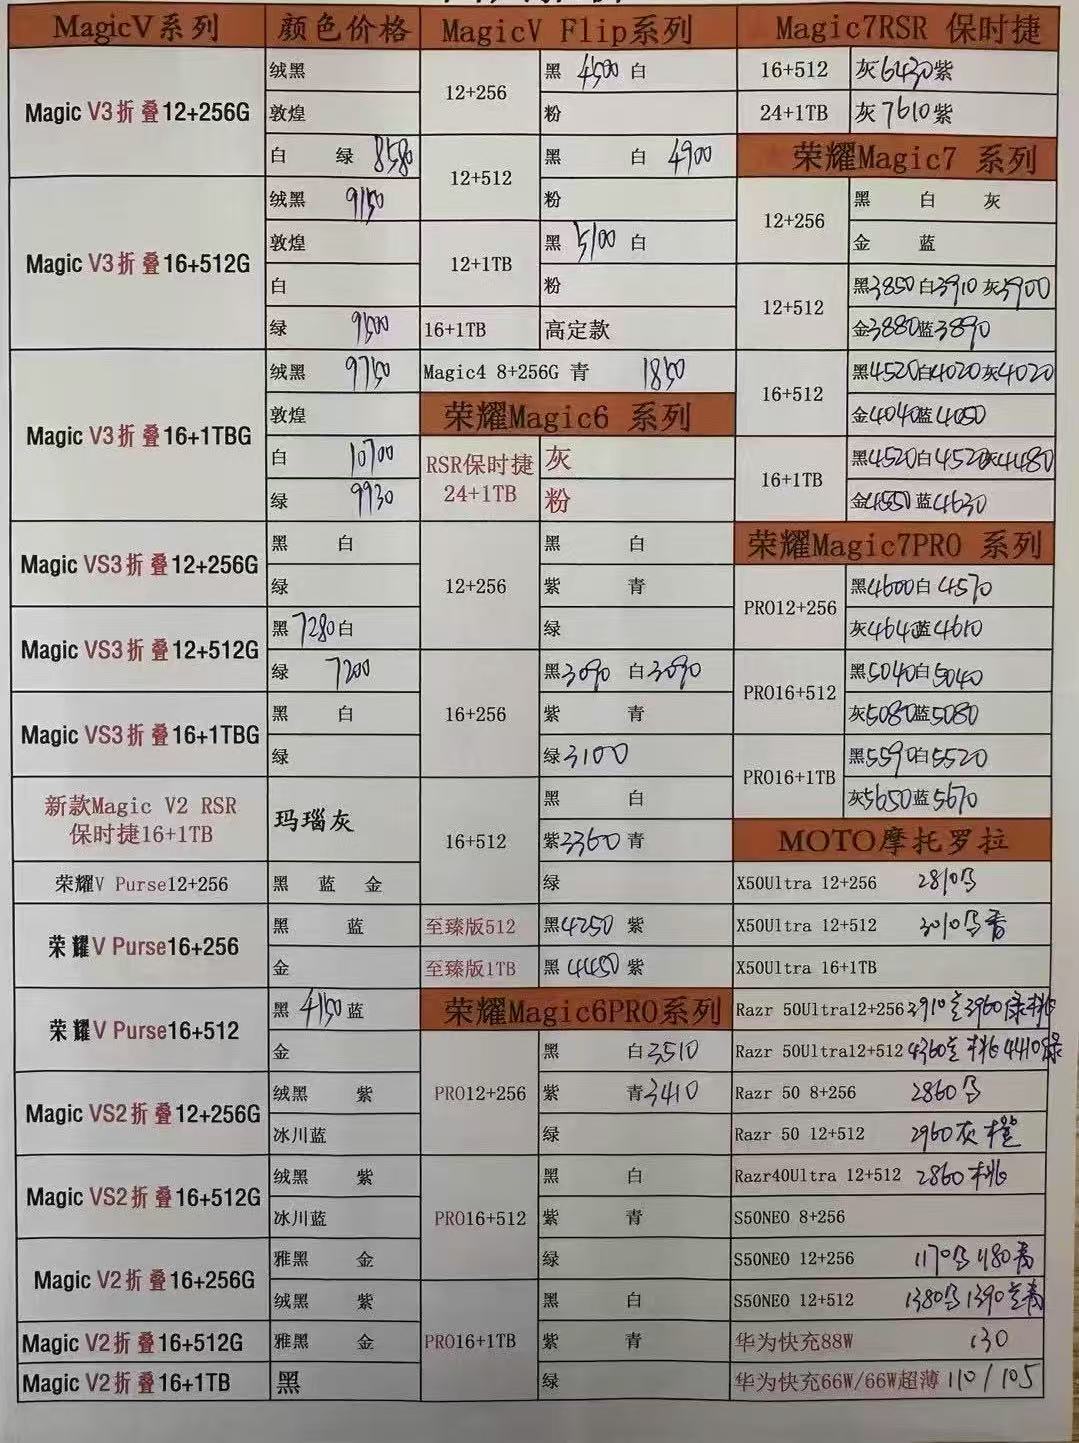 MagicV系列 颜色价格
Magic V3折叠12+256G
绒黑
敦煌
白 绿 8580
Magic V3折叠16+512G
绒黑 9150
敦煌
白
绿 9500
Magic V3折叠16+1TBG
绒黑 9750
敦煌
白 10700
绿 9930
Magic VS3折叠12+256G
黑 白
绿
Magic VS3折叠12+512G
黑 7280 白
绿 7200
Magic VS3折叠16+1TBG
黑 白
绿
新款Magic V2 RSR
保时捷16+1TB
玛瑙灰
荣耀V Purse12+256 黑 蓝 金
荣耀V Purse16+256
黑 蓝
金
荣耀V Purse16+512
黑 4150 蓝
金
Magic VS2折叠12+256G
绒黑 紫
冰川蓝
Magic VS2折叠16+512G
绒黑 紫
冰川蓝
Magic V2折叠16+256G
雅黑 金
绒黑 紫
Magic V2折叠16+512G 雅黑 金
Magic V2折叠16+1TB 黑
MagicV Flip系列
12+256
黑 4500 白
粉
12+512
黑 白 4900
粉
12+1TB
黑 5100 白
粉
16+1TB 高定款
Magic4 8+256G 青 1850
荣耀Magic6 系列
RSR保时捷
24+1TB
灰
粉
12+256
黑 白
紫 青
绿
16+256
黑3090 白3090
紫 青
绿3100
16+512
黑 白
紫3360青
绿
至臻版512 黑4250 紫
至臻版1TB 黑 4450 紫
荣耀Magic6PRO系列
PRO12+256
黑 白3510
紫 青3410
绿
PRO16+512
黑 白
紫 青
绿
PRO16+1TB
黑 白
紫 青
绿
Magic7RSR 保时捷
16+512 灰6430紫
24+1TB 灰7610紫
荣耀Magic7 系列
12+256
黑 白 灰
金 蓝
12+512
黑3850白3910灰3900
金3880蓝3890
16+512
黑4520白4020灰4020
金4040蓝4050
16+1TB
黑4520白4520灰4480
金4550蓝4630
荣耀Magic7PRO 系列
PRO12+256
黑4600白4570
灰464蓝4610
PRO16+512
黑5040白5040
灰5080蓝5080
PRO16+1TB
黑5590白5520
灰5650蓝5670
MOTO摩托罗拉
X50Ultra 12+256 2810
X50Ultra 12+512 3010
X50Ultra 16+1TB
Razr 50Ultra12+256 3910 3960绿桃
Razr 50Ultra12+512 4360 桃 4410绿
Razr 50 8+256 2860
Razr 50 12+512 2960灰 橙
Razr40Ultra 12+512 2860桃
S50NEO 8+256
S50NEO 12+256 1170 1180青
S50NEO 12+512 1380 1390
华为快充88W 130
华为快充66W/66W超薄 110/105